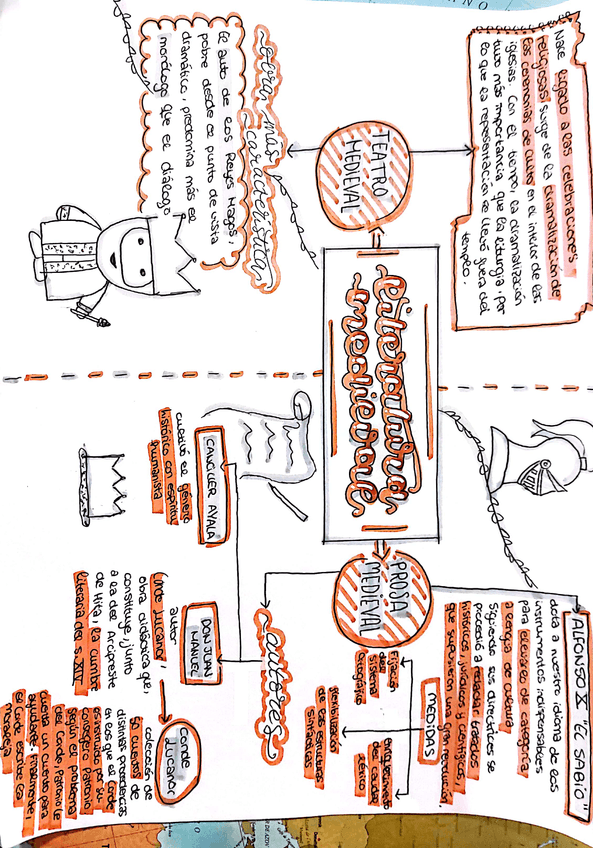 Literatura
medieval
TEATRO
MEDIEVAL
Nace ligado a las celebraciones
religiosas, surge de la dramatización de
las ceremonias de culto en el interior de las
iglesias. Con el tiempo, la dramatización
tuvo más importancia que la liturgia, por
lo que la representación se llevó fuera del
templo.
obra más
característica
El auto de los Reyes Magos,
pobre desde el punto de vista
dramático, predomina más el
monólogo que el diálogo
PROSA
MEDIEVAL
ALFONSO X "EL SABIO"
dota a nuestro idioma de los
instrumentos indispensables
para elevarlo de categoría
a lengua de cultura.
Siguiendo sus directrices se
procedió a redactar tratados
históricos, jurídicos y científicos,
que supusieron una gran revolución.
MEDIDAS
Fijación
del
sistema
ortográfico
flexibilización
de las estructuras
sintácticas
enriquecimiento
del caudal
léxico
autores
CANCILLER AYALA
cultivó el género
histórico con espíritu
humanista
DON JUAN
MANUEL
autor
Conde Lucanor,
obra didáctica que,
constituye, junto
a la del Arcipreste
de Hita, la cumbre
literaria del s. XIV
Conde
Lucanor
colección de
50 cuentos de
distintas procedencias
en los que el conde
es ayudado por su
consejero Patronio
según el problema
del Conde, Patronio le
cuenta un cuento para
ayudarle. Finalmente,
el Conde escribe la
moraleja